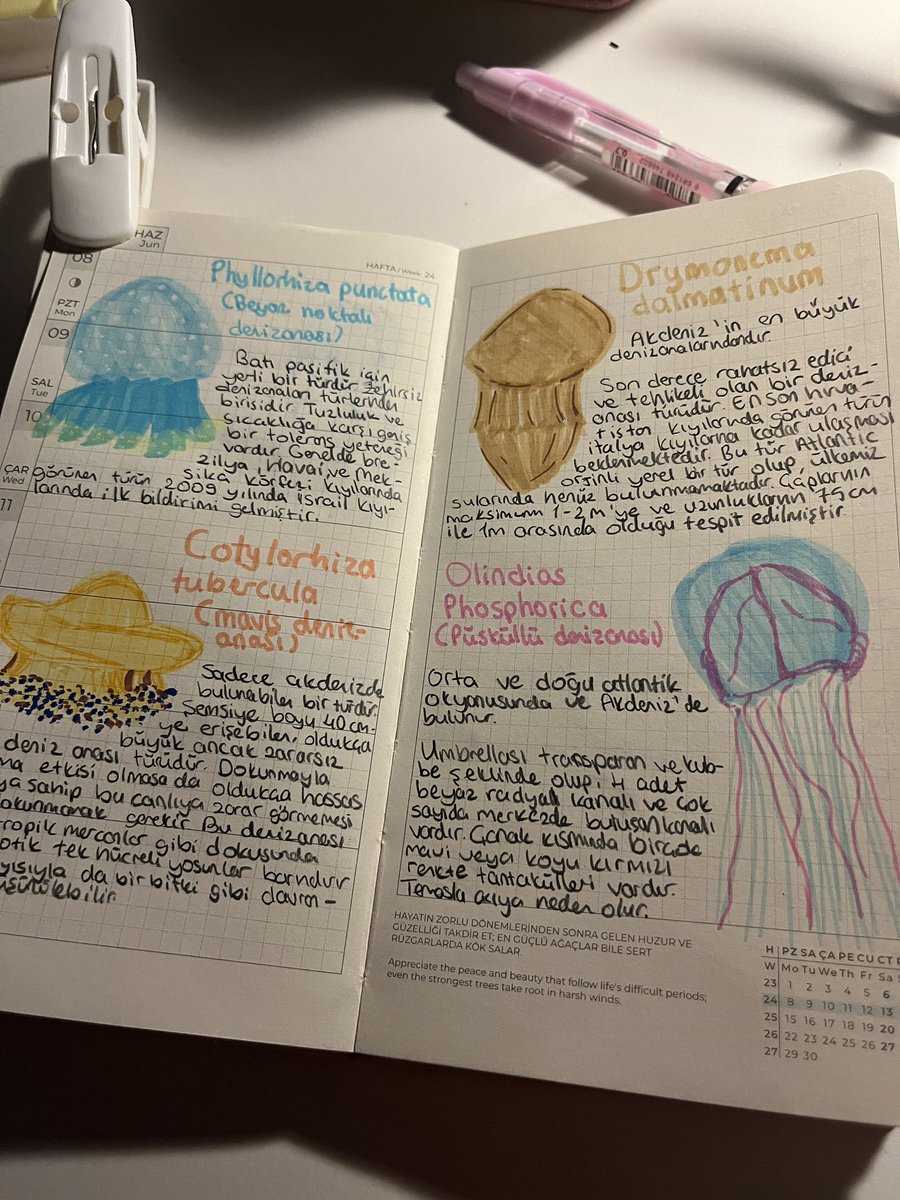 HAZ
Jun
HAFTA/Week: 24
08
PZT
Mon
09
SAL
Tue
10
ÇAR
Wed
11
Phyllorhiza punctata
(Beyaz noktalı
denizanası)
Batı pasifik için
yerli bir türdür zehirsiz
denizanaları türlerinden
birisidir. Tuzluluk ve
sıcaklığa karşı geniş
bir tolerans yeteneği
vardır. Genelde bre-
zilya, Havai ve Mek-
sika körfezi kıyılarında
görünen türün 2009 yılında israil kıyı-
larında ilk bildirimi gelmiştir.
Cotylorhiza
tubercula
(maviş deniz-
anası)
Sadece akdenizde
bulunabilen bir türdür.
Şemsiye boyu 40 cm-
ye erişebilen, oldukça
büyük ancak zararsız
deniz anası türüdür. Dokunmayla
etkisi olmasa da oldukça hassas
sahip bu canlıya zarar görmemesi
dokunmamak gerekir Bu denizanası
tropik mercanlar gibi dokusunda
tek hücreli yosunlar barındırır
da bir bitki gibi davran-
Drymonema
dalmatinum
Akdeniz'in en büyük
denizanalarındandır.
Son derece rahatsız edici
ve tehlikeli olan bir deniz-
anası türüdür. En son hırva-
tistan kıyılarında görünen türün
italya kıyılarına kadar ulaşması
beklenmektedir. Bu tür Atlantic
orjinli yerel bir tür olup, ülkemiz
sularında henüz bulunmamaktadır. Çaplarının
maksimum 1-2 m'ye ve uzunlukların 75 cm
ile 1m arasında olduğu tespit edilmiştir
Olindias
Phosphorica
(Püsküllü denizanası)
Orta ve doğu atlantik
okyanusunda ve Akdeniz'de
bulunur.
Umbrellası transparan ve kub-
be şeklinde olup; 4 adet
beyaz radyal kanalı ve çok
sayıda merkezde buluşan kanalı
vardır. Çanak kısmında birçok
mavi veya koyu kırmızı
renkte tantakülleri vardır.
Temasla acıya neden olur.
HAYATIN ZORLU DÖNEMLERİNDEN SONRA GELEN HUZUR VE
GÜZELLİĞİ TAKDİR ET; EN GÜÇLÜ AĞAÇLAR BİLE SERT
RÜZGARLARDA KÖK SALAR.
Appreciate the peace and beauty that follow life's difficult periods;
even the strongest trees take root in harsh winds.
H PZ SA ÇA PE CU CT
W Mo Tu We Th Fr Sa
23 1 2 3 4 5 6
24 8 9 10 11 12 13
25 15 16 17 18 19 20
26 22 23 24 25 26 27
27 29 30
0.3